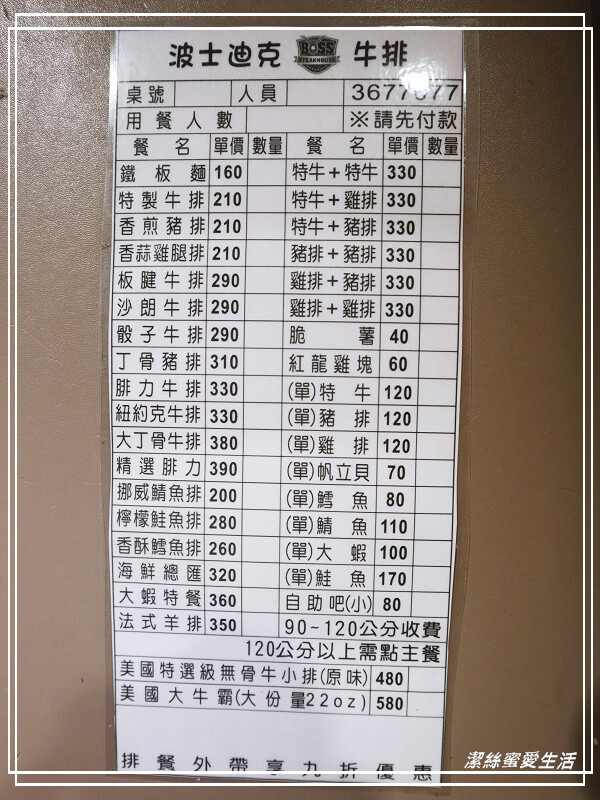 波士迪克 BOSS STEAKHOUSE 牛排
桌號 人員 3677677
用餐人數 ※請先付款
餐名 單價 數量 餐名 單價 數量
鐵板麵 160 特牛+特牛 330
特製牛排 210 特牛+雞排 330
香煎豬排 210 特牛+豬排 330
香蒜雞腿排 210 豬排+豬排 330
板腱牛排 290 雞排+豬排 330
沙朗牛排 290 雞排+雞排 330
骰子牛排 290 脆薯 40
丁骨豬排 310 紅龍雞塊 60
腓力牛排 330 (單)特牛 120
紐約克牛排 330 (單)豬排 120
大丁骨牛排 380 (單)雞排 120
精選腓力 390 (單)帆立貝 70
挪威鯖魚排 200 (單)鱈魚 80
檸檬鮭魚排 280 (單)鯖魚 110
香酥鱈魚排 260 (單)大蝦 100
海鮮總匯 320 (單)鮭魚 170
大蝦特餐 360 自助吧(小) 80
法式羊排 350 90~120公分收費
120公分以上需點主餐
美國特選級無骨牛小排(原味) 480
美國大牛霸(大份量22oz) 580
排餐外帶享九折優惠
潔絲蜜愛生活